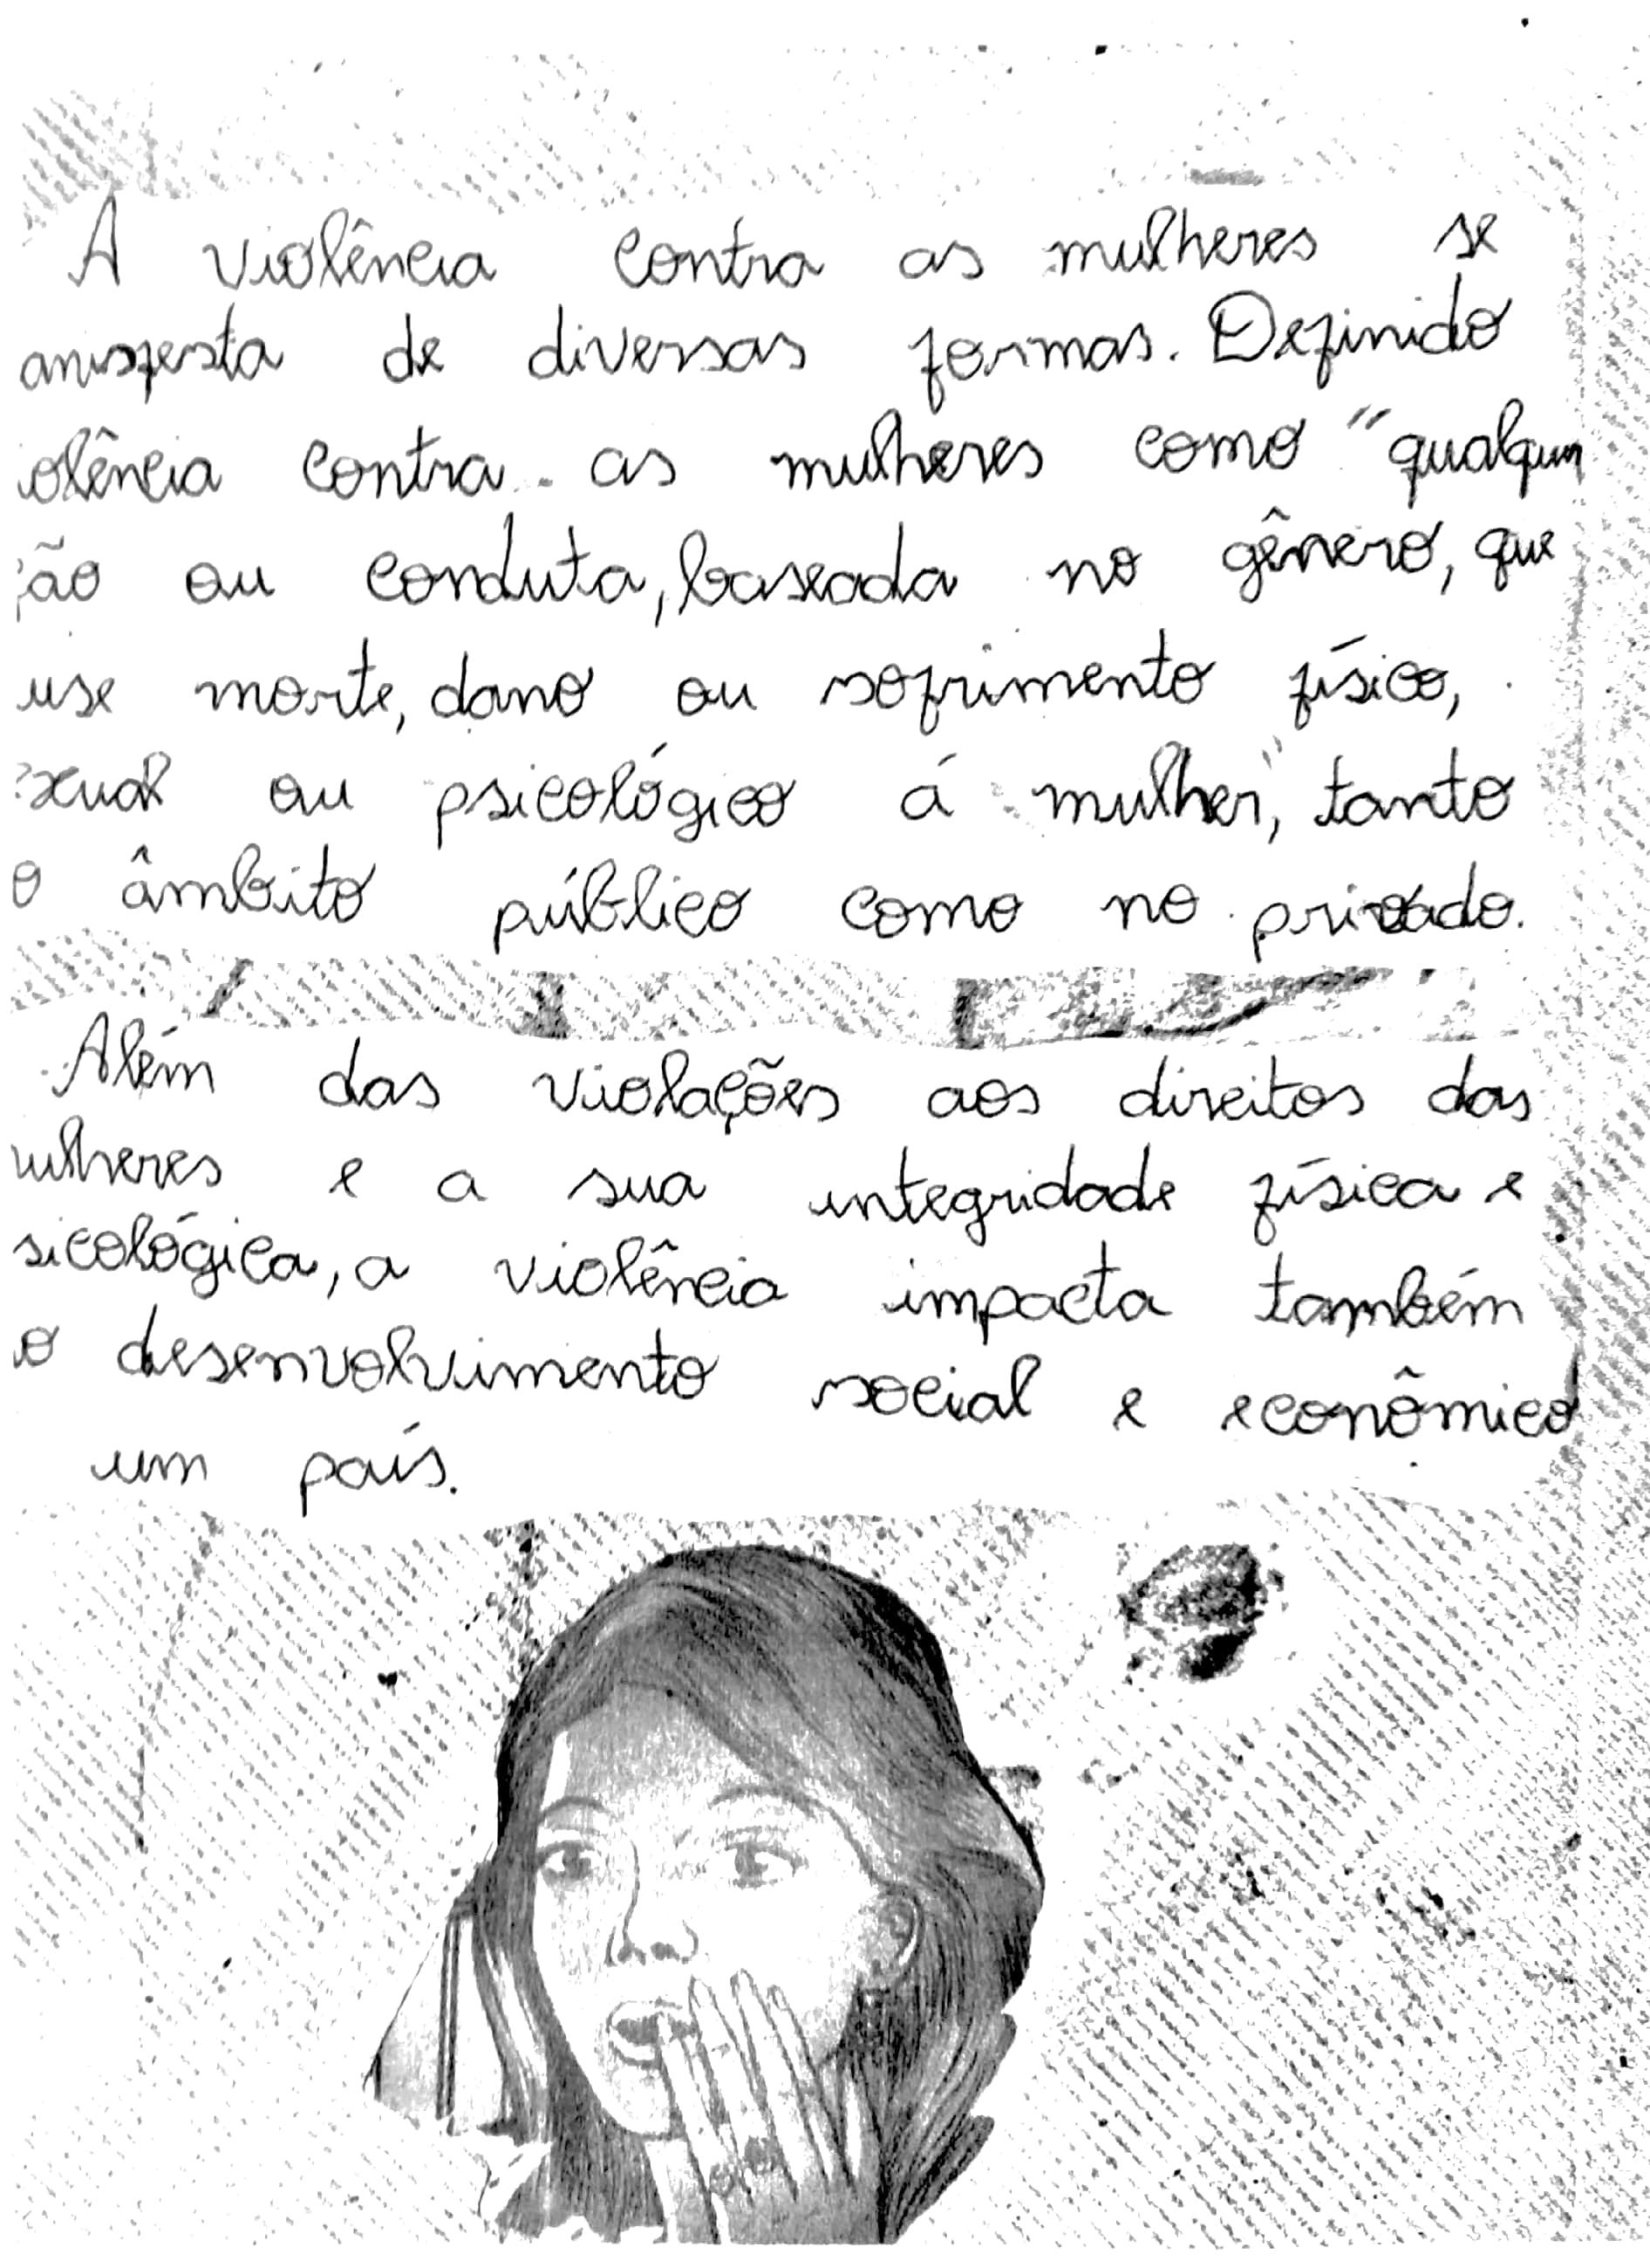 A violência contra as mulheres se
anisfesta de diversas formas. Definido
olência contra as mulheres como "qualquer
ão ou conduta, baseada no gênero, que
use morte, dano ou sofrimento físico,
xual ou psicológico á mulher", tanto
o âmbito público como no privado.
Além das violações aos direitos das
ulheres e a sua integridade física e
sicológica, a violência impacta também
o desenvolvimento social e econômico
um país.